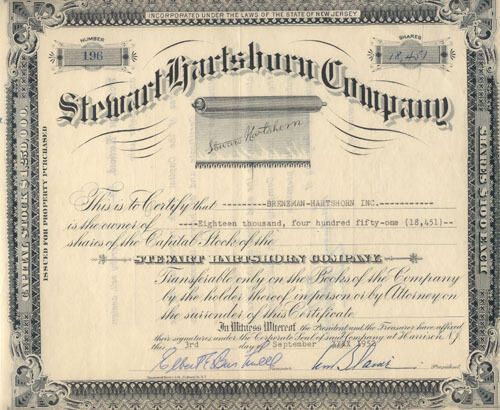 INCORPORATED UNDER THE LAWS OF THE STATE OF NEW JERSEY
NUMBER
196
SHARES
18,451
Stewart Hartshorn Company
Stewart Hartshorn
CAPITAL STOCK $1,450,000.
ISSUED FOR PROPERTY PURCHASED
SHARES $100 EACH
This is to Certify that BRENEMAN-HARTSHORN INC.
is the owner of Eighteen thousand, four hundred fifty-one (18,451)
shares of the Capital Stock of the
STEWART HARTSHORN COMPANY.
Transferable only on the Books of the Company
by the holder thereof in person or by Attorney on
the surrender of this Certificate.
In Witness Whereof the President and the Treasurer have affixed
their signatures under the Corporate Seal of said Company at Harrison, N.J.
this 3rd day of September 1954
Treasurer
President